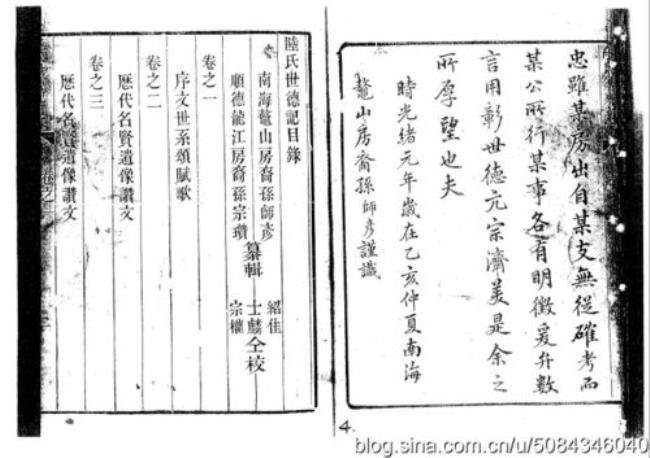 忠雖某房出自某支無從確考而
某公所行某事各有明徵爰弁數
言用彰世德亢宗濟美是余之
所厚望也夫
時光緒元年歲在乙亥仲夏南海
鼇山房裔孫師彥謹識
陸氏世德記目錄
南海鼇山房裔孫師彥
順德龍江房裔孫宗瓚
纂輯
紹佳
士麟
宗權
仝校
卷之一
序文世系頌賦歌
卷之二
歷代名賢遺像讚文
卷之三
歷代名賢遺像讚文
4.
blog.sina.com.cn/u/5084346040